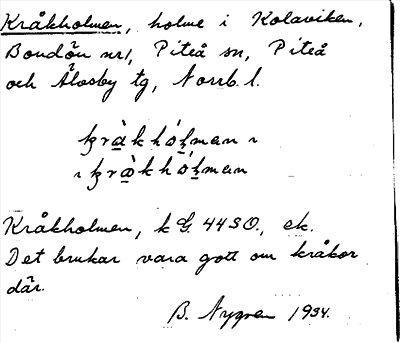 Kråkholmen, holme i Kolaviken,
Bondön nr 1, Piteå sn, Piteå
och Älvsby tg, Norrb. l.
kràkhólman
kràkhólman
Kråkholmen, k G. 44 SO., ek.
Det brukar vara gott om kråkor
där.
B. Nygren 1934.